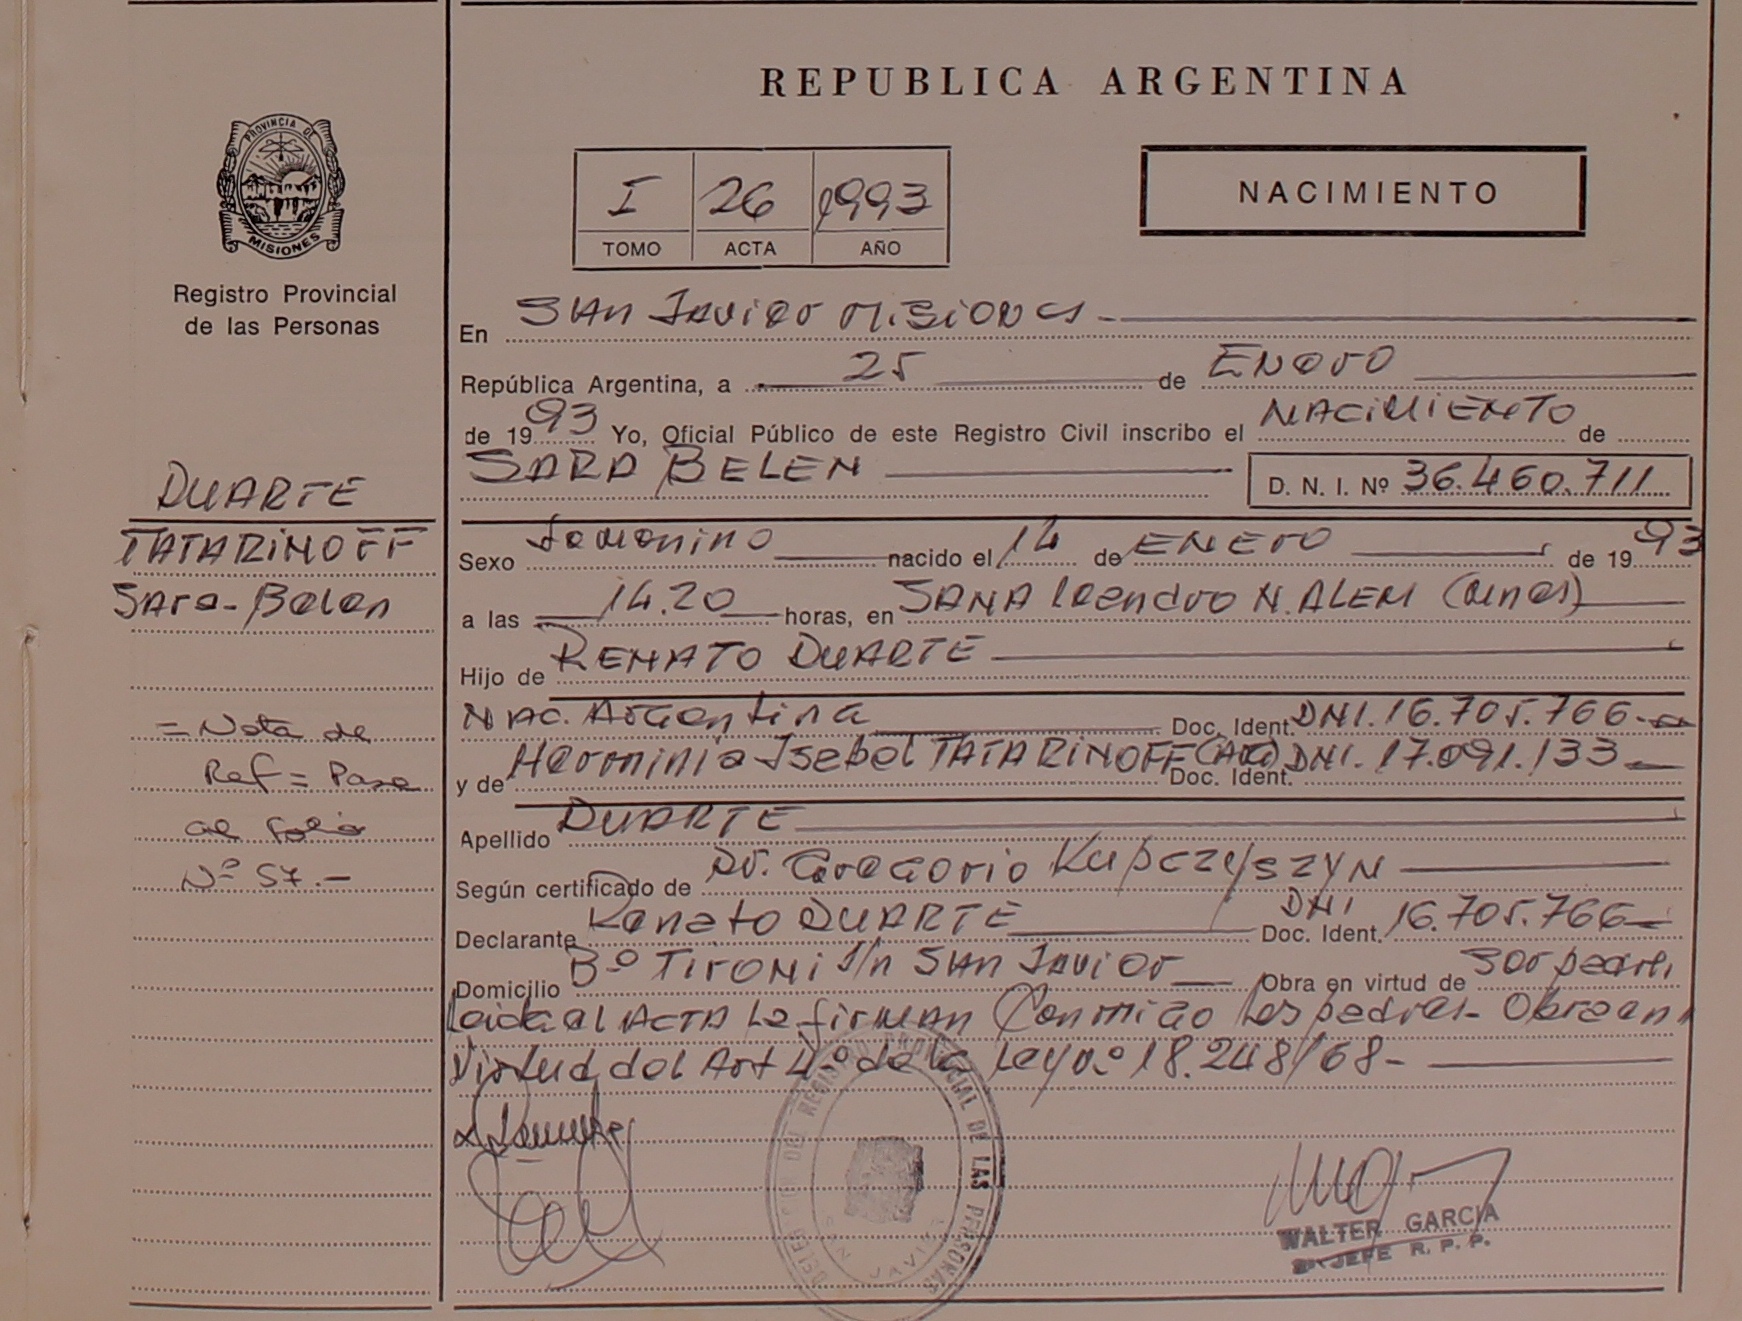 REPUBLICA ARGENTINA
PROVINCIA DE
MISIONES
Registro Provincial
de las Personas
I 26 1993
TOMO ACTA AÑO
NACIMIENTO
En San Javier Misiones
República Argentina, a 25 de Enero
de 1993 Yo, Oficial Público de este Registro Civil inscribo el NACIMIENTO de
SARA BELEN D. N. I. Nº 36.460.711
Sexo Femenino nacido el 14 de ENERO de 1993
a las 14.20 horas, en Leandro N. ALEM
Hijo de RENATO DUARTE
Nac. Argentina Doc. Ident. DNI. 16.705.766
y de Herminia Isabel TATARINOFF (ARG) Doc. Ident. DNI. 17.091.133
Apellido DUARTE
Según certificado de Dr. Gregorio Kupczyszyn
Declarante Renato DUARTE Doc. Ident. DNI 16.705.766
Domicilio Bº Tironi s/n San Javier Obra en virtud de ser padre,
Leida el ACTA la firman Conmigo los padres - Obra en
Virtud del Art 4º de la Ley nº 18.248/68-
DUARTE
TATARINOFF
Sara-Belen
= Nota de
Ref = Pase
al folio
Nº 57.-
REGISTRO PROVINCIAL DE LAS PERSONAS
SAN JAVIER
WALTER GARCIA
JEFE R. P. P.